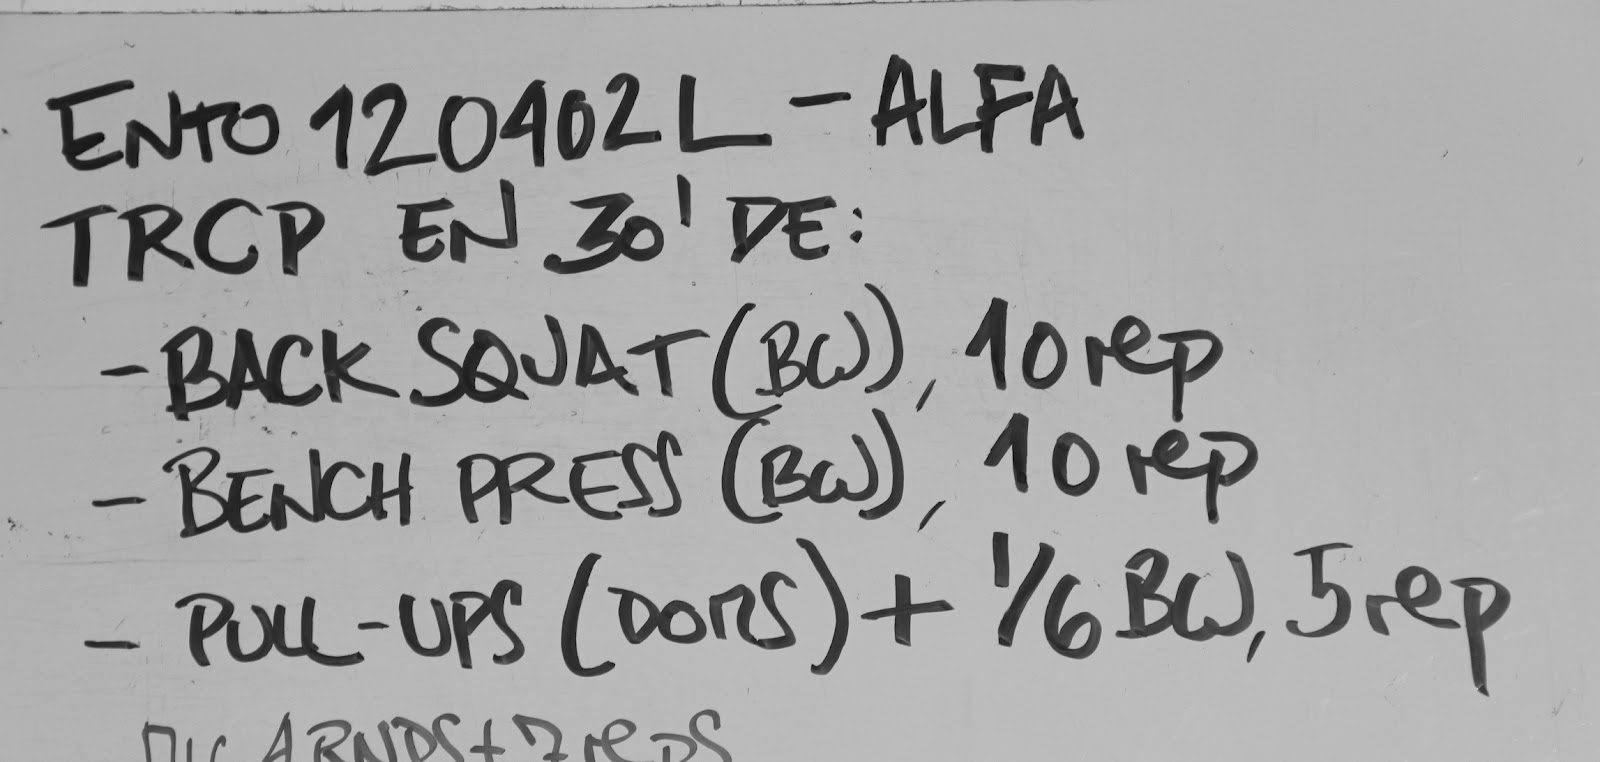 ENTO 120402L - ALFA
TRCP EN 30' DE:
- BACK SQUAT (BW), 10 rep
- BENCH PRESS (BW), 10 rep
- PULL-UPS (DORS) + 1/6 BW, 5 rep
RNDS + 7 reps